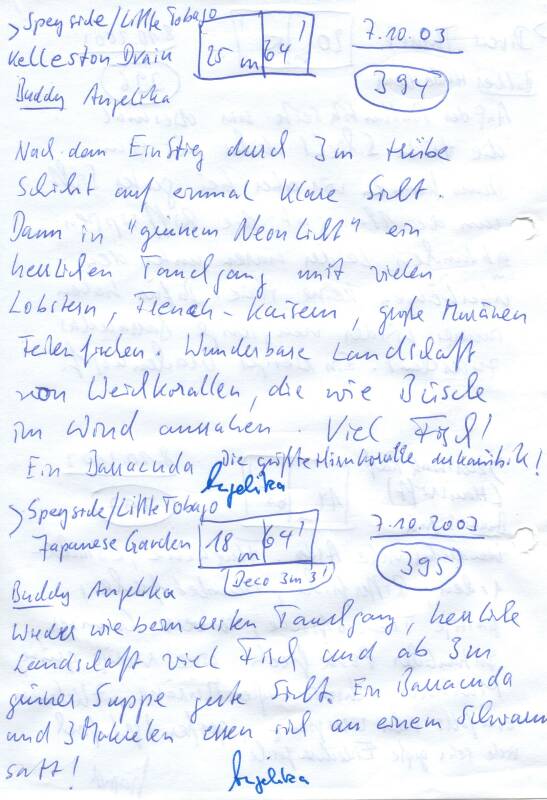 > Speyside/Little Tobago
Kelleston Drain 25 m 64' 7.10.03
394
Buddy Angelika
Nach dem Einstieg durch 3m trübe
Schicht auf einmal klare Sicht.
Dann in "grünem Neonlicht" ein
herrlichen Tauchgang mit vielen
Lobstern, French-Kaisern, große Muränen
Feilenfischen. Wunderbare Landschaft
von Weichkorallen, die wie Büsche
im Wind aussahen. Viel Fisch!
Ein Barracuda Die größte Hirnkoralle der Karibik!
Angelika
> Speyside/Little Tobago
Japanese Garden 18 m 64' 7.10.2003
Deco 3m 3' 395
Buddy Angelika
Wieder wie beim ersten Tauchgang, herrliche
Landschaft viel Fisch und ab 3m
grüner Suppe gute Sicht. Ein Barracuda
und 3 Makrelen essen sich an einem Schwarm
satt!
Angelika